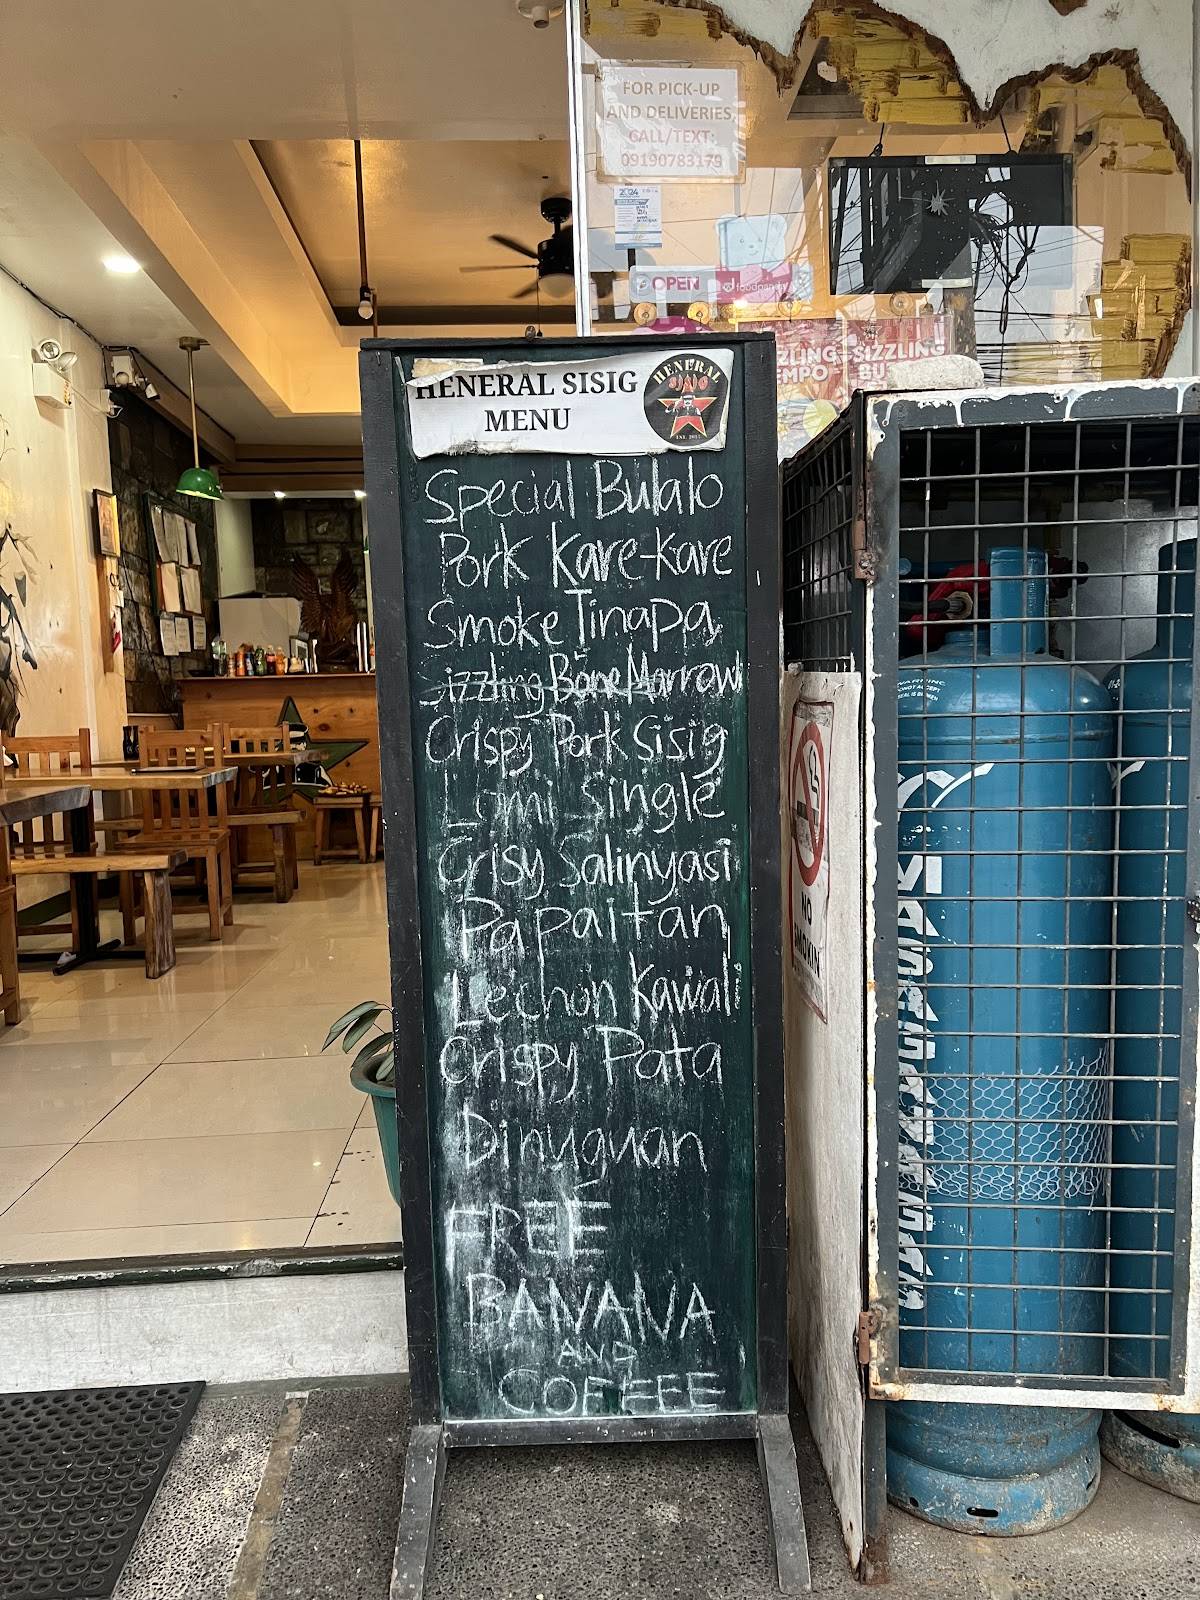 FOR PICK-UP
AND DELIVERIES,
CALL/TEXT:
09190783179
2024
OPEN
foodpanda
SIZZLING
HENERAL SISIG
MENU
HENERAL
SISIG
Special Bulalo
Pork Kare-Kare
Smoke Tinapa
Sizzling Bone Marrow
Crispy Pork Sisig
Lomi Single
Crisy Salinyasi
Papaitan
Lechon Kawali
Crispy Pata
Dinuguan
FREE
BANANA
AND
COFEEE
NO
SMOKIN
WARNING